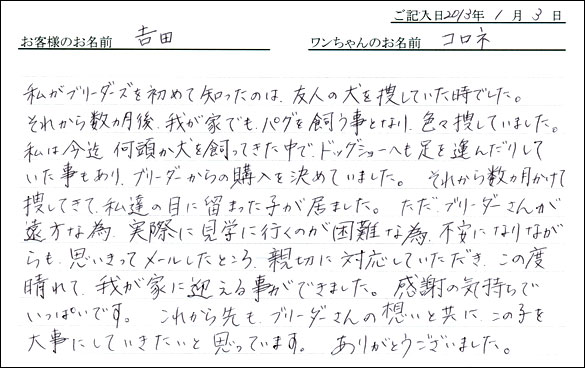 ご記入日2013年 1月 3日
お客様のお名前 吉田 ワンちゃんのお名前 コロネ
私がブリーダーズを初めて知ったのは、友人の犬を捜していた時でした。
それから数カ月後、我が家でも、パグを飼う事となり、色々捜していました。
私は今迄 何頭か犬を飼ってきた中で、ドッグショーへも足を運んだりして
いた事もあり、ブリーダーからの購入を決めていました。 それから数カ月かけて
捜してきて、私達の目に留まった子が居ました。 ただ、ブリーダーさんが
遠方な為、実際に見学に行くのが困難な為、不安になりなが
らも、思いきってメールしたところ、親切に対応していただき、この度
晴れて、我が家に迎える事ができました。 感謝の気持ちで
いっぱいです。 これから先も、ブリーダーさんの想いと共に、この子を
大事にしていきたいと思っています。 ありがとうございました。